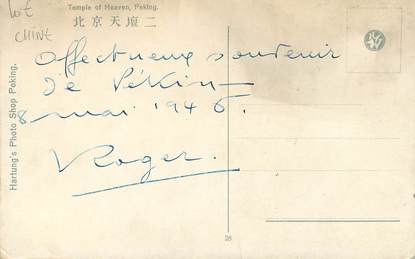 Lot
CHINE
Temple of Heaven, Peking.
北京天壇二
Hartung's Photo Shop Peking.
Affectueux souvenir
de Pékin —
8 mai 1946.
Roger.
28